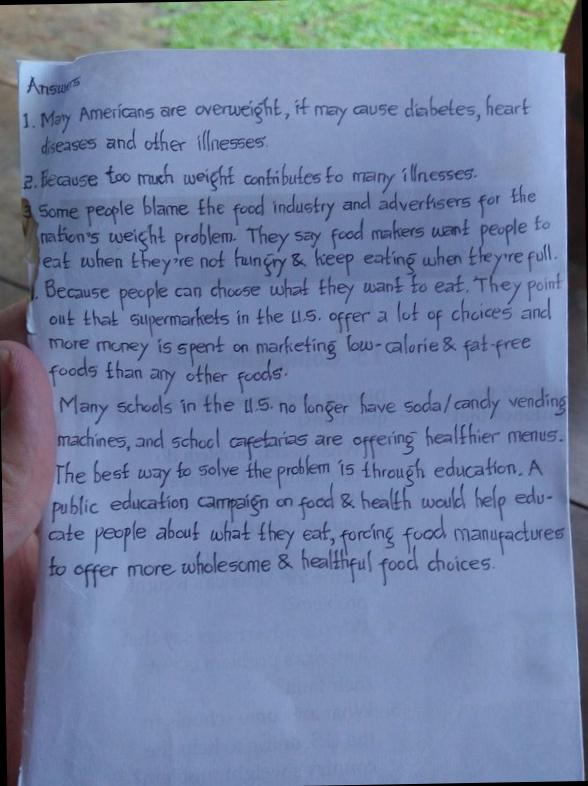 Answers
1. May Americans are overweight, it may cause diabetes, heart
diseases and other illnesses.
2. Because too much weight contributes to many illnesses.
3 Some people blame the food industry and advertisers for the
nation's weight problem. They say food makers want people to
eat when they're not hungry & keep eating when they're full.
. Because people can choose what they want to eat. They point
out that supermarkets in the U.S. offer a lot of choices and
more money is spent on marketing low-calorie & fat-free
foods than any other foods.
Many schools in the U.S. no longer have soda/candy vending
machines, and school cafetarias are offering healthier menus.
The best way to solve the problem is through education. A
public education campaign on food & health would help edu-
cate people about what they eat, forcing food manufactures
to offer more wholesome & healthful food choices.